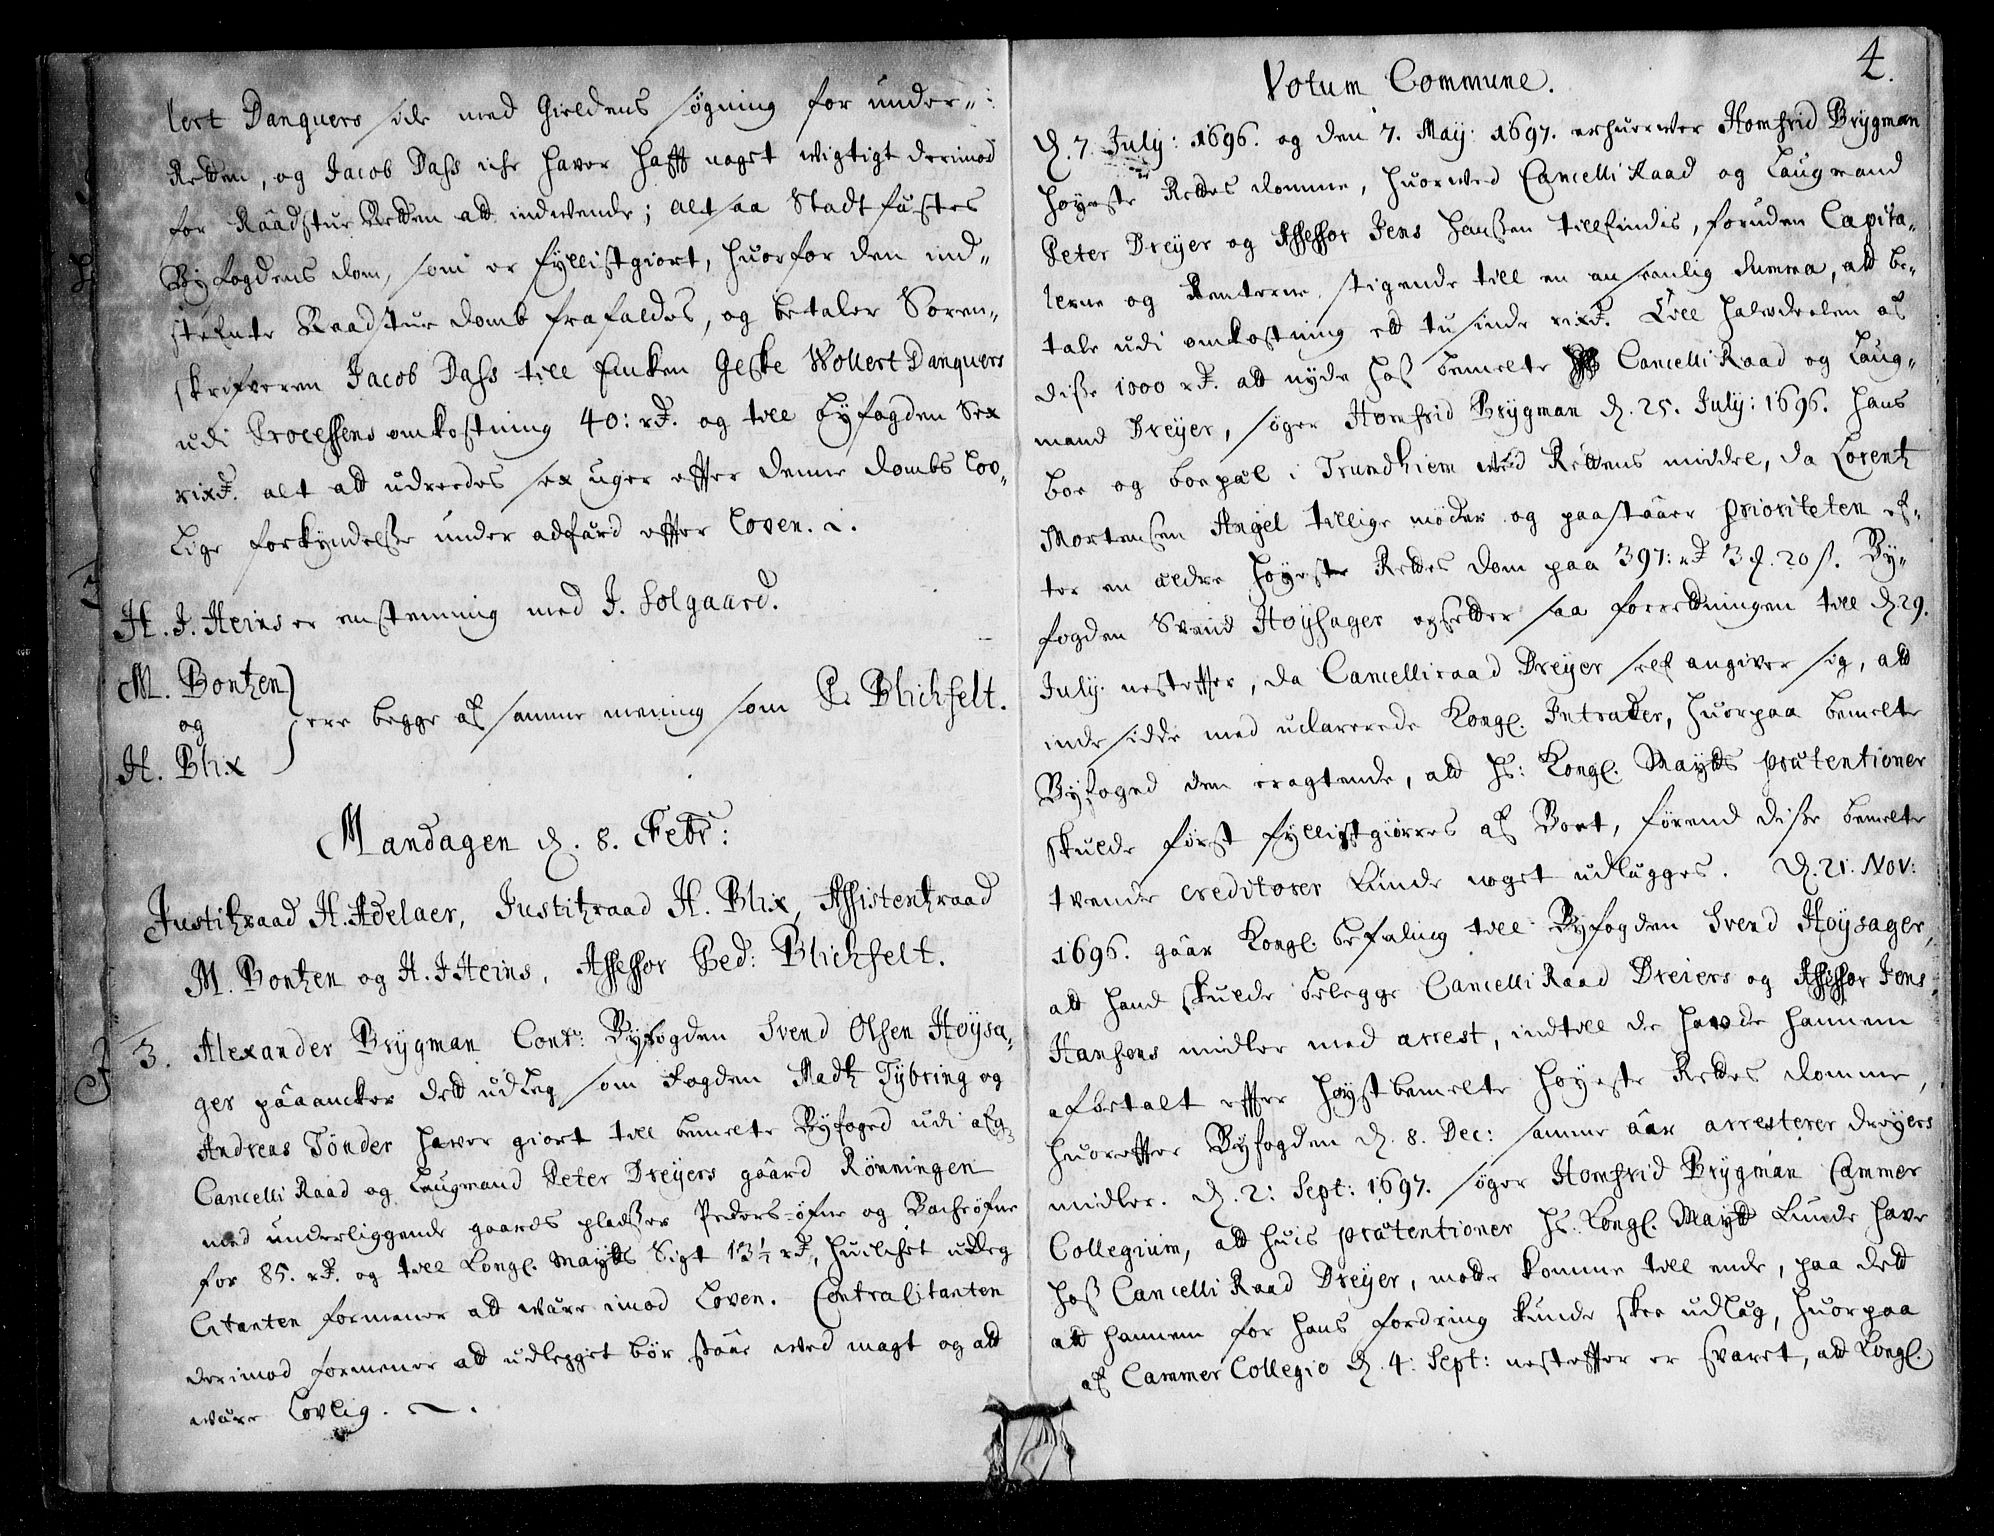 lert Danquers side med Gieldens søgning for under-:
Retten, og Jacob Dass iche haver hafft noget wigtigt derimod
for Raadstue Retten att indwende; altsaa Stadfæstes
Byfogdens dom, som er fyllistgiort, huorfor den ind-
stefnte Raadstue domb frafaldes, og betaler Soren-
skrifveren Jacob Dass till Enken Geske Wollert Danquers
udi Processens omkostning 40: rd. og till byfogden Sex
rixd. alt att udreedes sex uger effter denne dombs lov-
lige forkyndelsse under adfærd effter loven.
H. J. Heins er enstemmig med J. Solgaard.
M. Bontzen
og
H. Blix
ere begge af samme mening som P. Blichfelt.
Mandagen d. 8. Febr:
Justitzraad H. Adelaer, Justitzraad H. Blix, Assistentzraad
M. Bontzen og H. J Heins, Assessor Ped: Blichfelt.
3. Alexander Brÿgman Contr: Byfogden Svend Olsen Høysa-
ger paaancker dett udleg som Fogden Madtz Tÿbring og
Andreas Tönder haver giort till bemelte Byfoged udi afg.
Cancelli Raad og Laugmand Peter Dreÿers gaard Rönningen
med underliggende gaards pladser Peders-öfne og Bachöfne
for 85. rd. og till Kongl. Maytts Sigt 13½ rd, huilchet udleg
Citanten formener att wære imod loven. Contracitanten
derimod formener att udlegget bör staae ved magt og att
wære lovlig.
4.
Votum Commune.
D. 7. July: 1696. og den 7. May: 1697. erhuerver Homfrid Brÿgman
høyeste Rettes domme, huorved Cancelli Raad og Laugmand
Peter Dreÿer og Assessor Jens Hanssen tillfindis, foruden Capita-
lerne og Renterne, stigende till en anseenlig Summa, att be-
tale udi omkostning ett tusinde rixd. Till halvdeelen af
disse 1000 rd. att nyde hos bemelte Cancelli Raad og Laug-
mand Dreÿer, søger Homfrid Brÿgman d. 25. July: 1696. hans
boe og boepæl i Trundhiem ved Rettens middel, da Lorentz
Mortensen Angel tillige møder og paastaaer prioriteten ef-
ter en ældre høyeste Rettes dom paa 397: rd 3 ƒ. 20 s. By-
fogden Svend Høysager opsetter saa forrettningen till d 29.
July. nesteffter, da Cancelliraad Dreÿer self angiver sig, att
indesidde med uclarerede Kongl. Intrader, huorpaa bemelte
Byfoged den eragtende, att hs: Kongl. Maytts prætentioner
skulde først fyllistgiørres af Boet, førend disse bemelte
tvende creditorer kunde noget udlægges. D. 21. Nov:
1696. gaar Kongl. befaling till Byfogden Svend Høysager,
att hand skulde belegge Cancelli Raad Dreiers og Assessor Jens
Hansens midler med arrest, indtill de havde hannem
afbetalt effter høystbemelte høyeste Rettes domme,
huoreffter Byfogden d. 8. Dec: samme aar arresterer Dreyers
midler. D. 2: Sept: 1697. søger Homfrid Brÿgman Cammer
Collegium, att huis prætentioner hs. Kongl. Maytt kunde have
hos Cancelli Raad Dreÿer, motte komme till ende, paa dett
att hannem for hans fordring kunde skee udlæg, huorpaa
af Cammer Collegio d. 4: Sept: nesteffter er svaret, att Kongl.